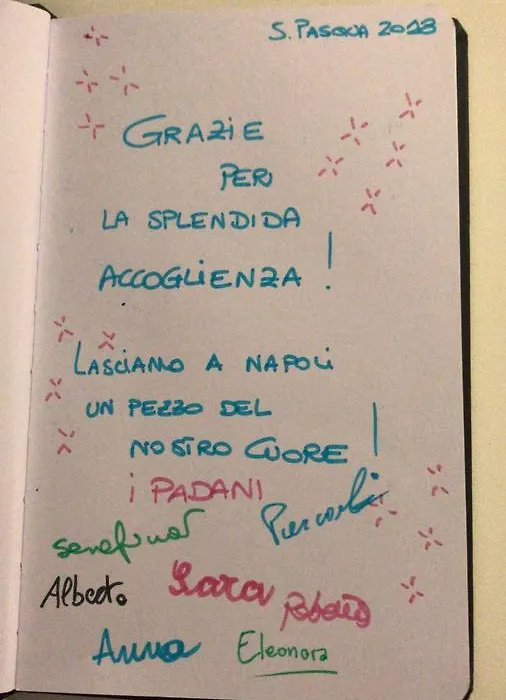 S. PASQUA 2018
GRAZIE
PER
LA SPLENDIDA
ACCOGLIENZA!
LASCIAMO A NAPOLI
UN PEZZO DEL
NOSTRO CUORE!
i PADANI
Piercarlo
Serafina
Alberto Sara Roberto
Anna Eleonora